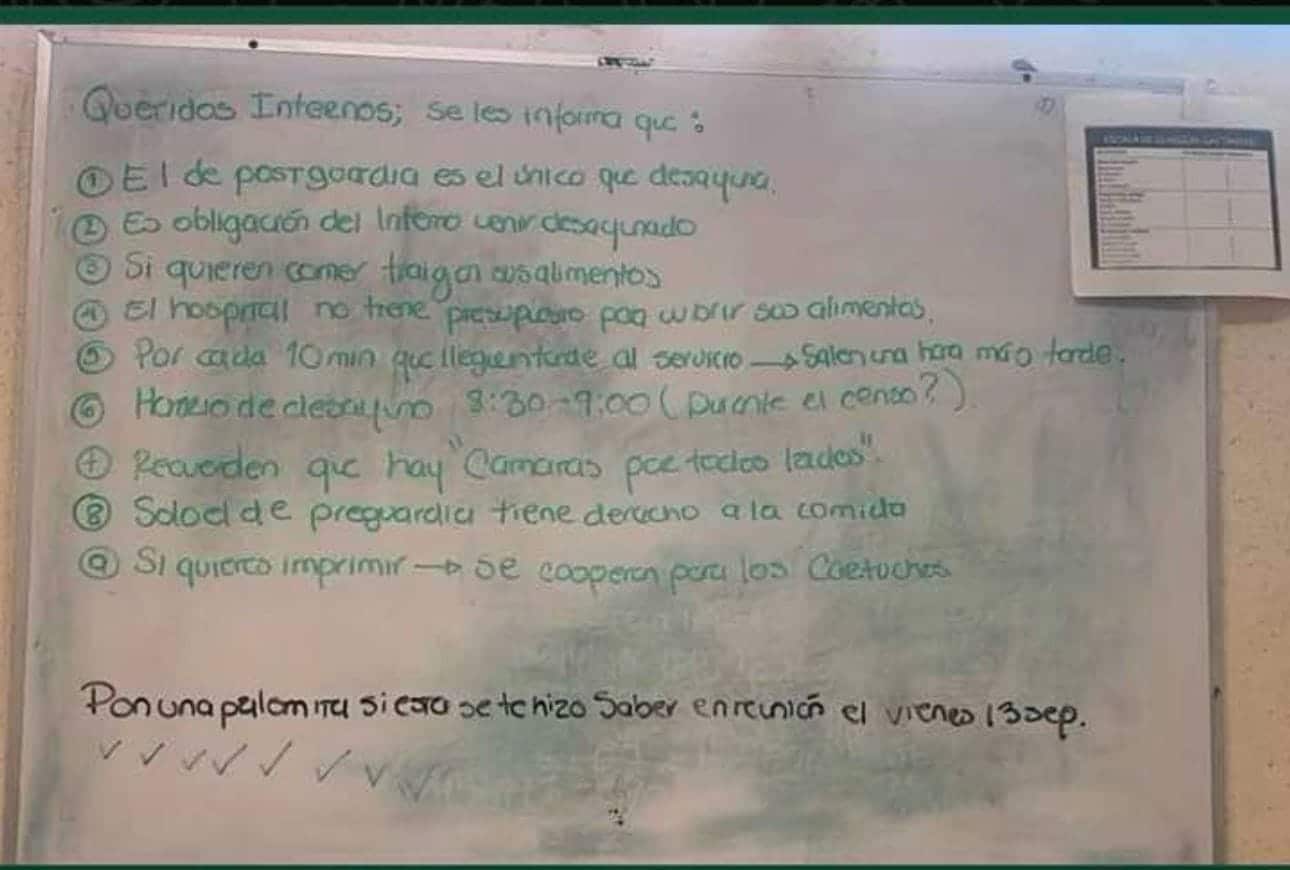 Queridos Internos; se les informa que :
① El de postguardia es el único que desayuna.
② Es obligación del Interno venir desayunado
③ Si quieren comer traigan sus alimentos
④ El hospital no tiene presupuesto para cubrir sus alimentos.
⑤ Por cada 10 min que lleguen tarde al servicio → Salen una hora más tarde.
⑥ Horario de desayuno 8:30-9:00 (Durante el censo?)
⑦ Recuerden que hay "Camaras por todos lados".
⑧ Solo el de preguardia tiene derecho a la comida
⑨ Si quieres imprimir → se cooperan para los Cartuchos
Pon una palomita si esto se te hizo Saber en reunión el viernes 13 sep.
✓ ✓ ✓ ✓ ✓ ✓ ✓ ✓ ✓